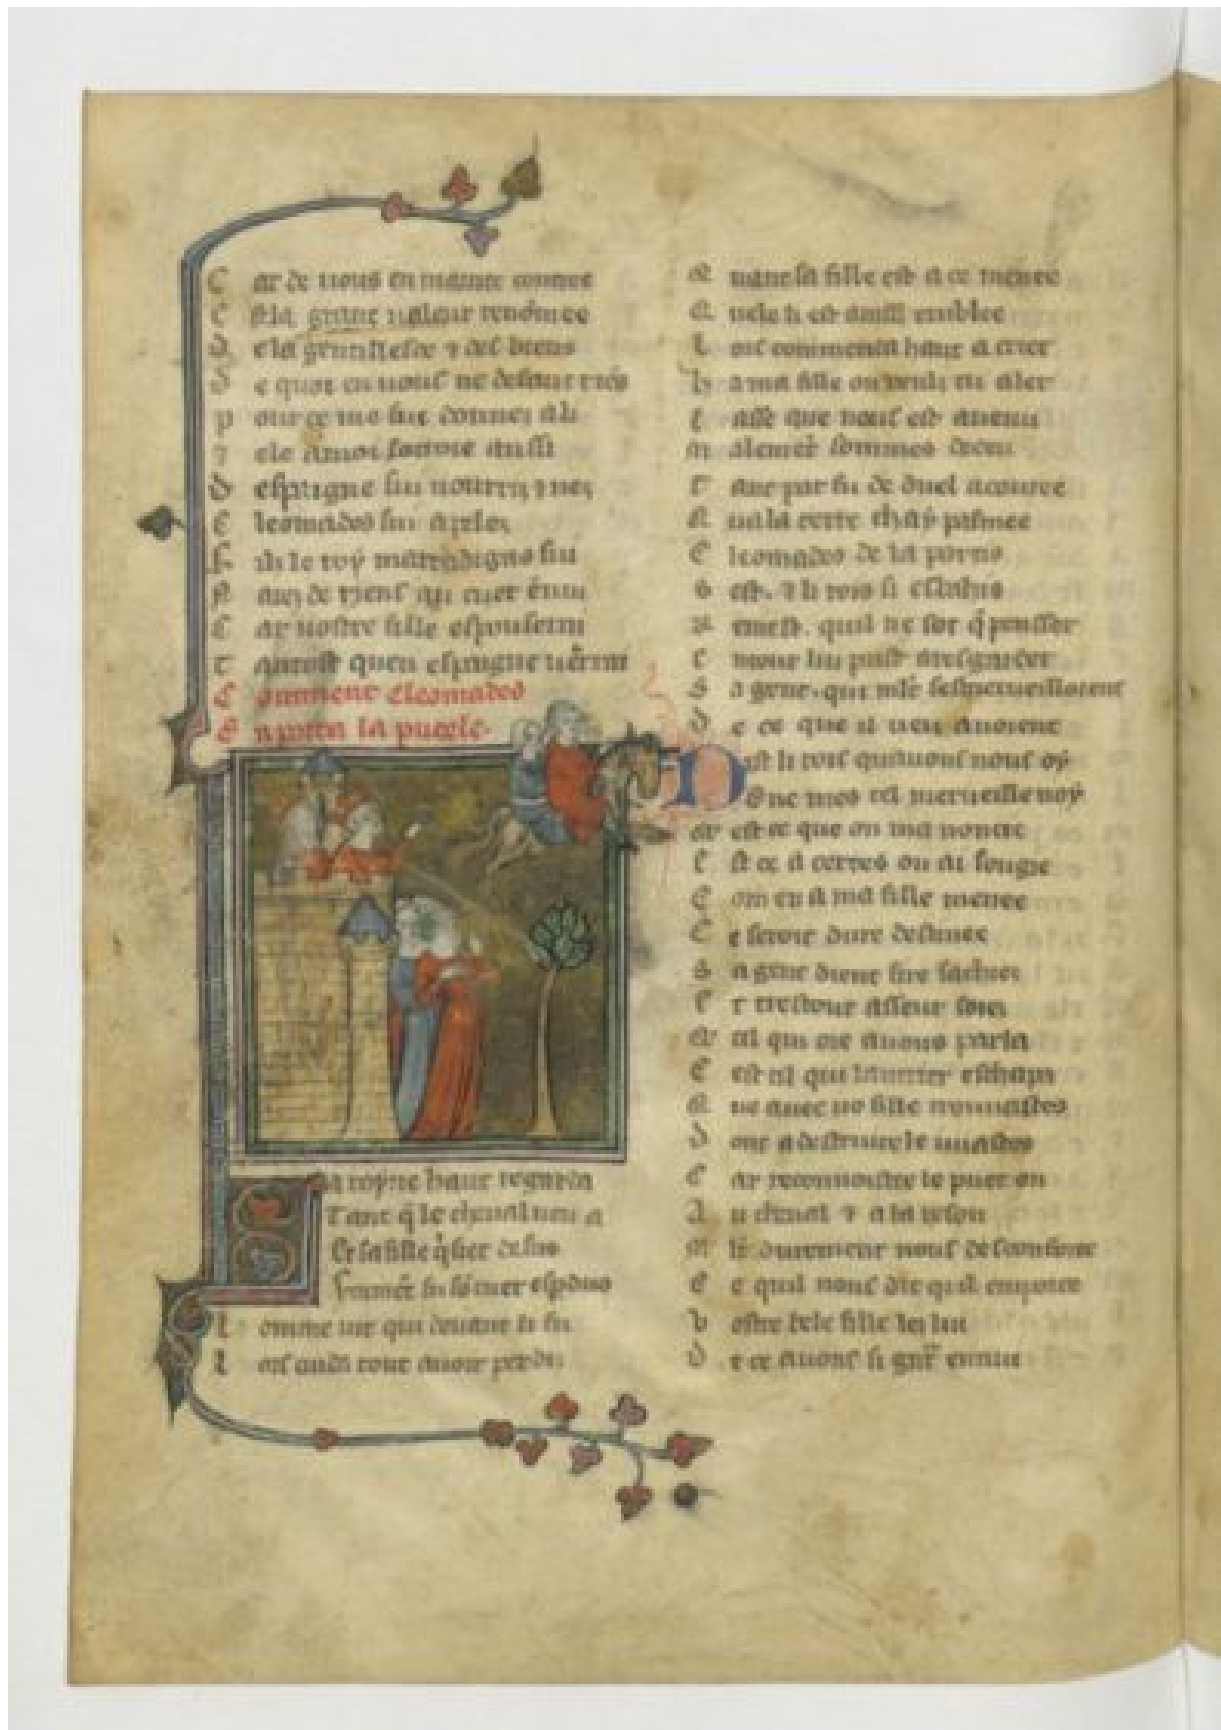 Car de vous en mainte contree
Est la grant valour renōmee
De la gentillesce ⁊ des biens
De quoi en vous ne defaut riēs
Pour ce me sui donnez a li
⁊ ele a moi aussi
Despaigne sui nourriz ⁊ nez
Cleomades sui apelez
Filz le roy marcadigas sui
Naiez de riens au cuer ēnui
Car vostre fille espouserai
Tantost quen espaigne vērrai
Comment cleomades
Enporta la pucele.
La royne haut regarda
Tant q̄ le cheval veu a
Et sa fille q̇ siet desus
Forment fu sō cuer esꝑdus
Comme
Lors cuida tout avoir perdu
Quant sa fille est a ce menee
Quele li est ainssi emblee
Lors commenca haut a crier
Ha ma fille ou veuls tu aler
Lasse que nous est avenu
Malemēt sommes deceu
Tant par fu de duel acouree
Qua la terre chaÿ pasmee
Cleomades de la portes
Est. ⁊ li rois si esbahis
Remest. quil ne set q̄ penser
Sa gent. qui mlt̄ sesmerveilloient
De ce que il veu avoient
Dist li rois quavons nous oÿ
Onc mes tel merveille voÿ
Quest ce que on ma
Est ce a certes ou ai songie
Com en a ma fille menee
Ce seroit dure destinee
Sa gent dient sire sachiez
Et trestout asseur soiez
Que cil qui ore a vous parla
Est cil qui lautrier eschapa
Que avec vo fille trouvastes
Dont a destruire le
Car reconnoistre le puet on
Au cheval ⁊ a la reson
Mlt̄ durement nous desconforte
Ce quil nous dit quil emporte
Vostre bele fille lez lui
De ce avons si grāt ennui